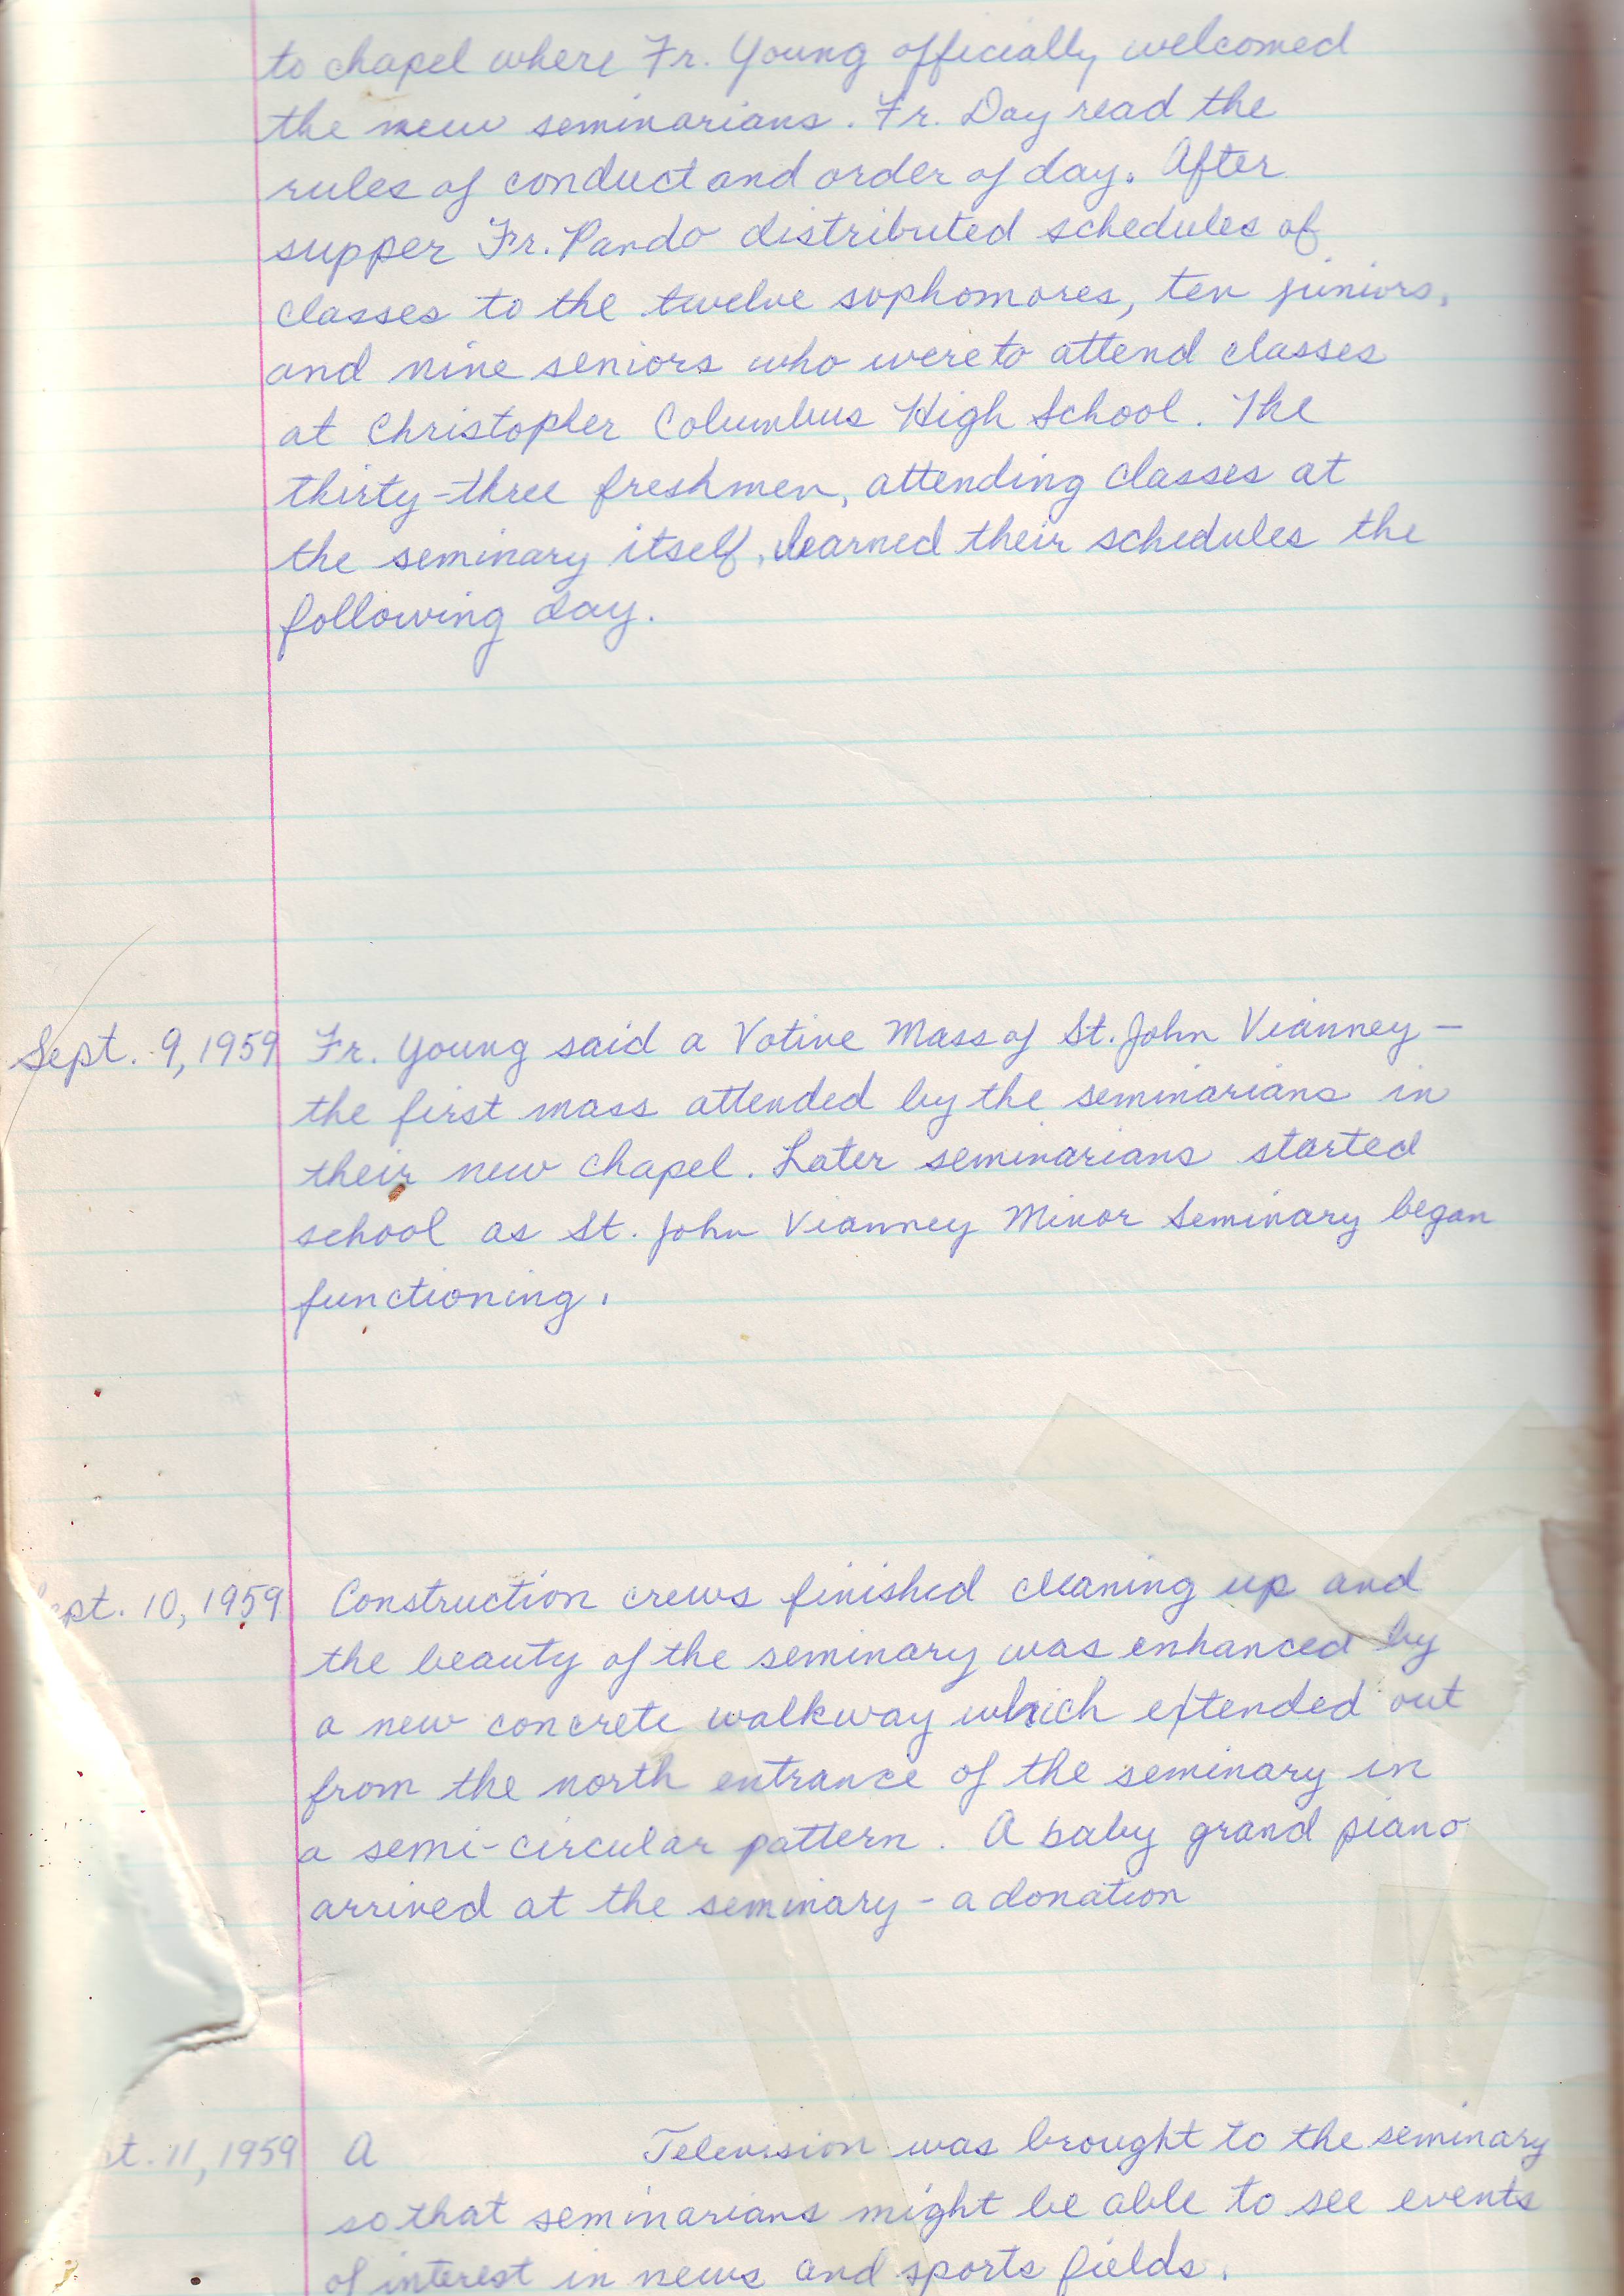 to chapel where Fr. Young officially welcomed
the new seminarians. Fr. Day read the
rules of conduct and order of day. After
supper Fr. Pando distributed schedules of
classes to the twelve sophomores, ten juniors,
and nine seniors who were to attend classes
at Christopher Columbus High School. The
thirty-three freshmen, attending classes at
the seminary itself, learned their schedules the
following day.
Sept. 9, 1959 Fr. Young said a Votive Mass of St. John Vianney —
the first mass attended by the seminarians in
their new chapel. Later seminarians started
school as St. John Vianney Minor Seminary began
functioning.
ept. 10, 1959 Construction crews finished cleaning up and
the beauty of the seminary was enhanced by
a new concrete walkway which extended out
from the north entrance of the seminary in
a semi-circular pattern. A baby grand piano
arrived at the seminary - a donation
t. 11, 1959 A Television was brought to the seminary
so that seminarians might be able to see events
of interest in news and sports fields.